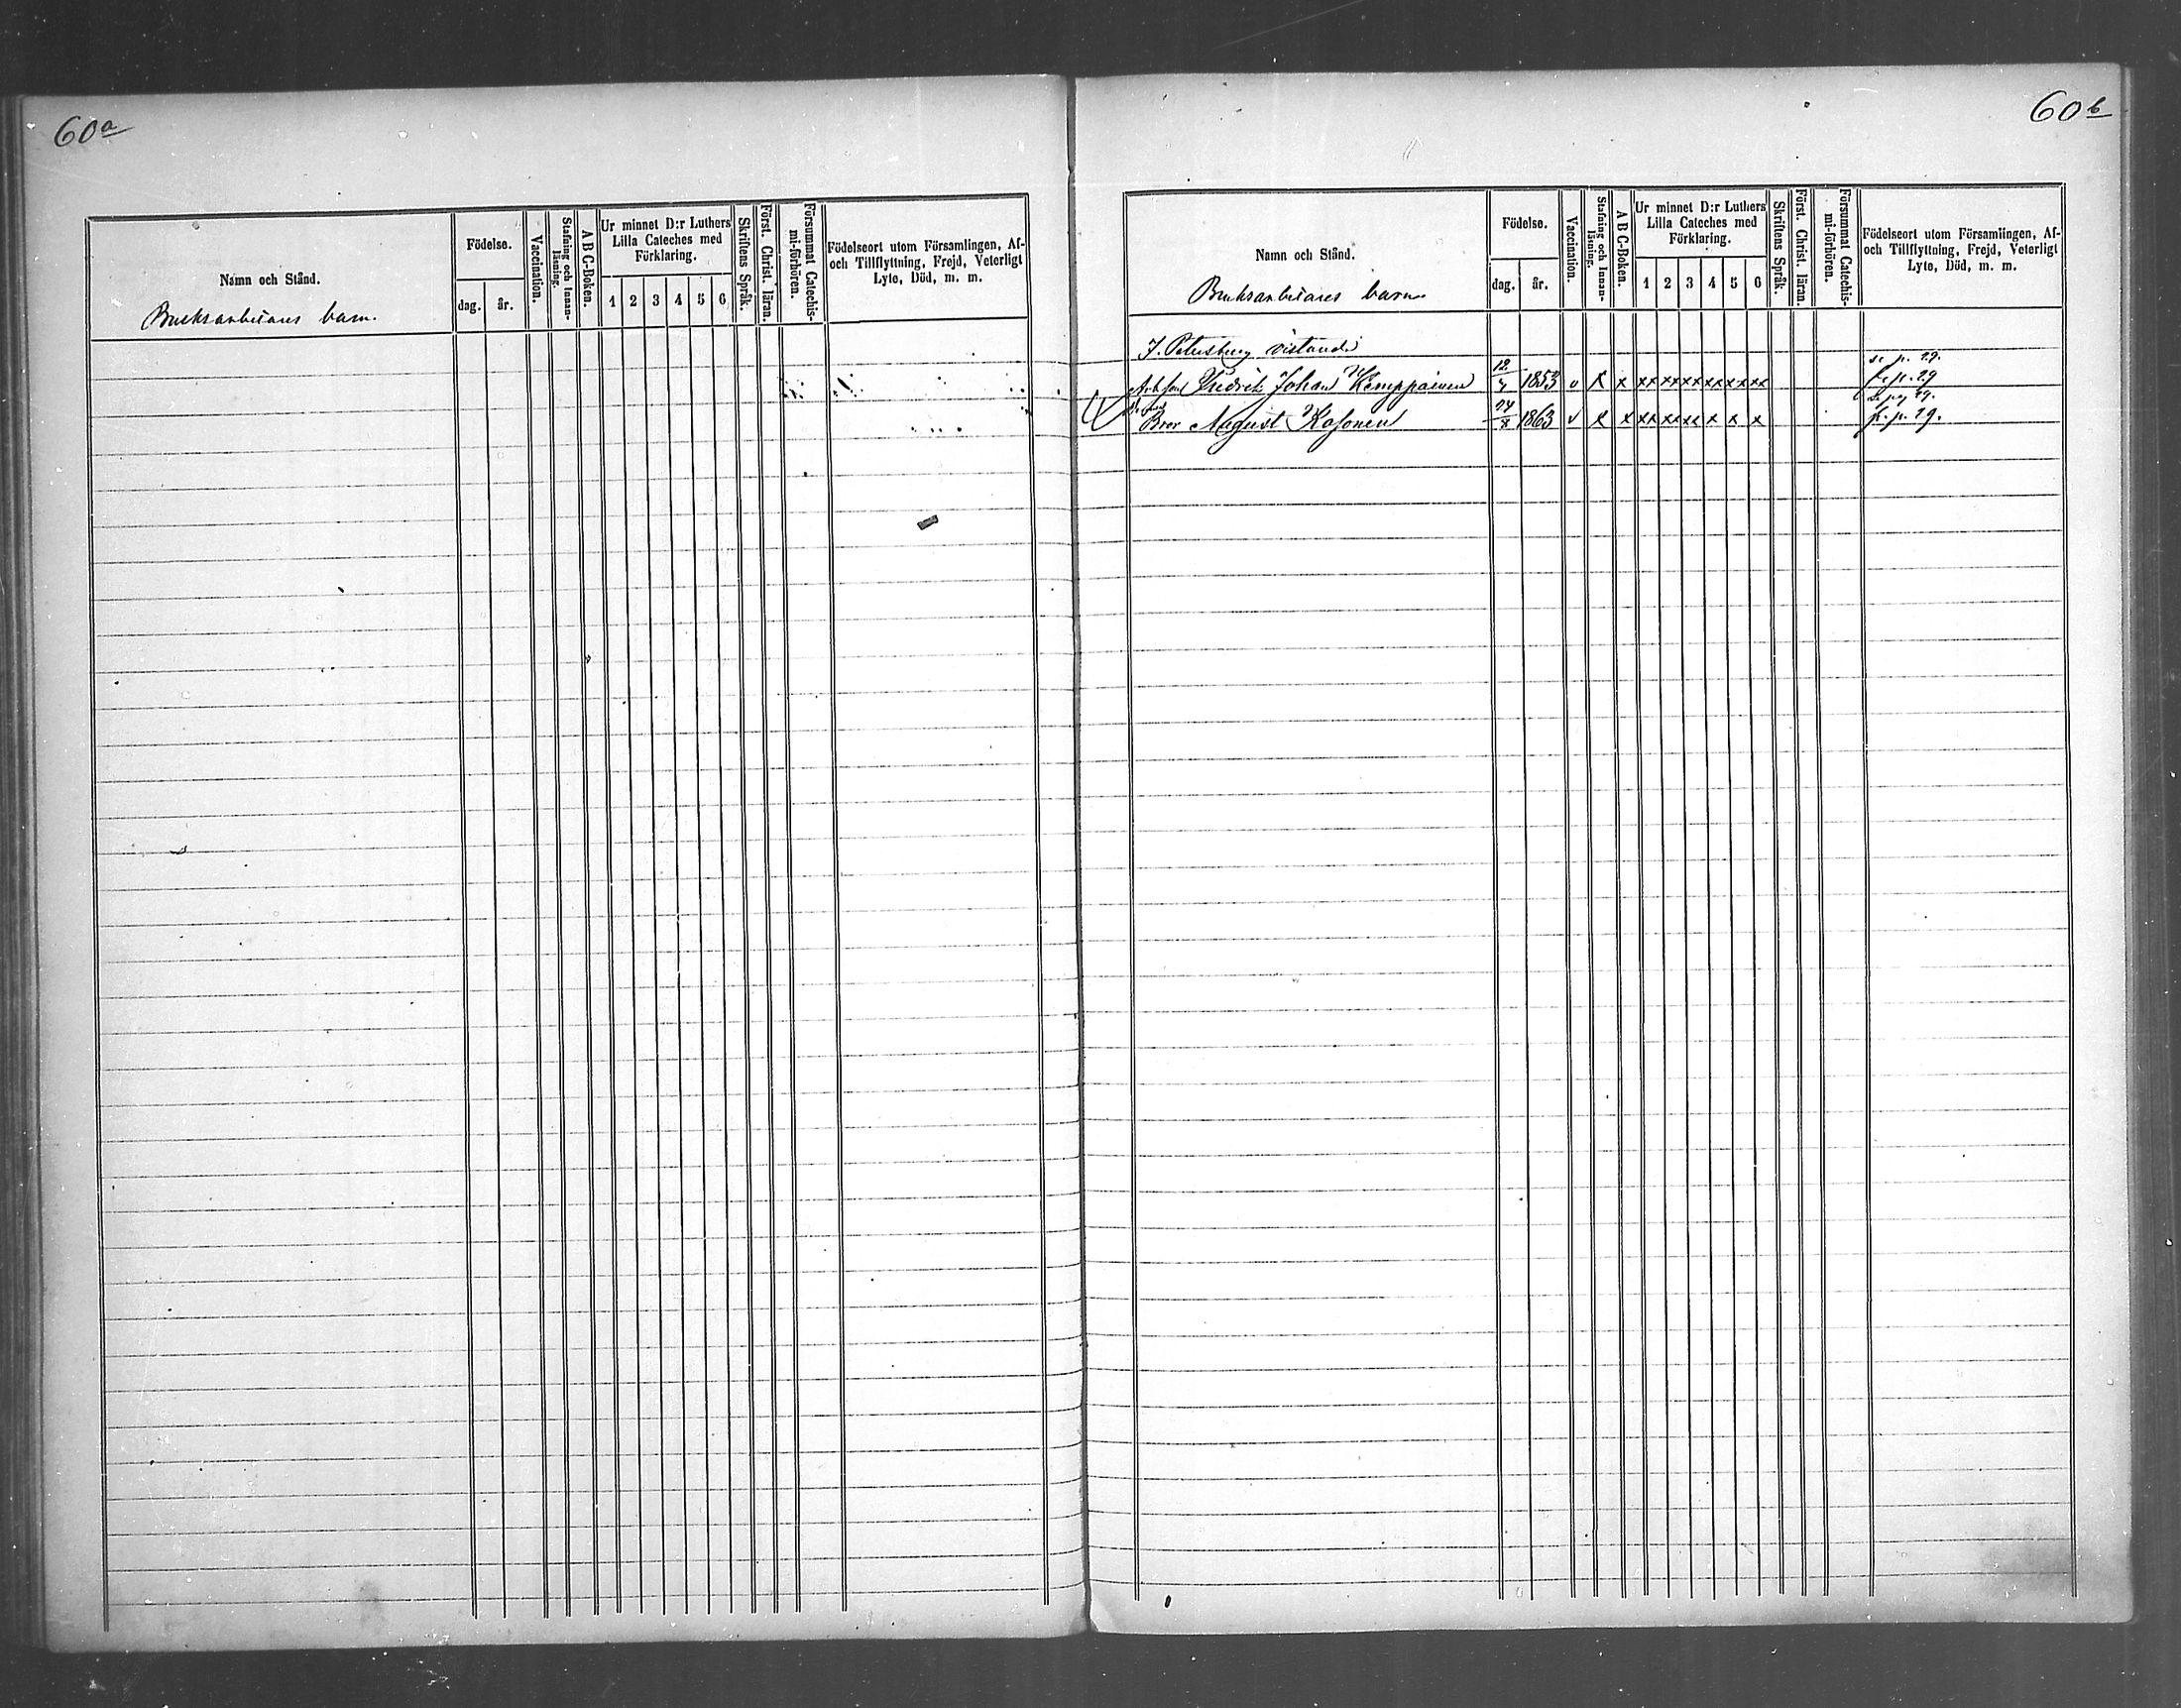 60a
Namn och Stånd.
Bruksarbetares barn.
Födelse.
dag. år.
Vaccination.
Stafning och Innan-
läsning.
A B C-Boken.
Ur minnet D:r Luthers
Lilla Cateches med
Förklaring.
1 2 3 4 5 6
Skriftens Språk.
Först. Christ. läran.
Försummat Catechis-
mi-förhören.
Födelseort utom Församlingen, Af-
och Tillflyttning, Frejd, Veterligt
Lyte, Död, m. m.
60b
Namn och Stånd.
Bruksarbetares barn.
Födelse.
dag. år.
Vaccination.
Stafning och Innan-
läsning.
A B C-Boken.
Ur minnet D:r Luthers
Lilla Cateches med
Förklaring.
1 2 3 4 5 6
Skriftens Språk.
Först. Christ. läran.
Försummat Catechis-
mi-förhören.
Födelseort utom Församlingen, Af-
och Tillflyttning, Frejd, Veterligt
Lyte, Död, m. m.
I. Petersburg vistande
se p. 29.
Fredrik Johan Kemppainen 1853 v x x xx xx xx xx xx xx fr. p. 29
Se pag 29.
Bror August Kosonen 24/8 1863 v x x xx xx xx x x x fr. p. 29.